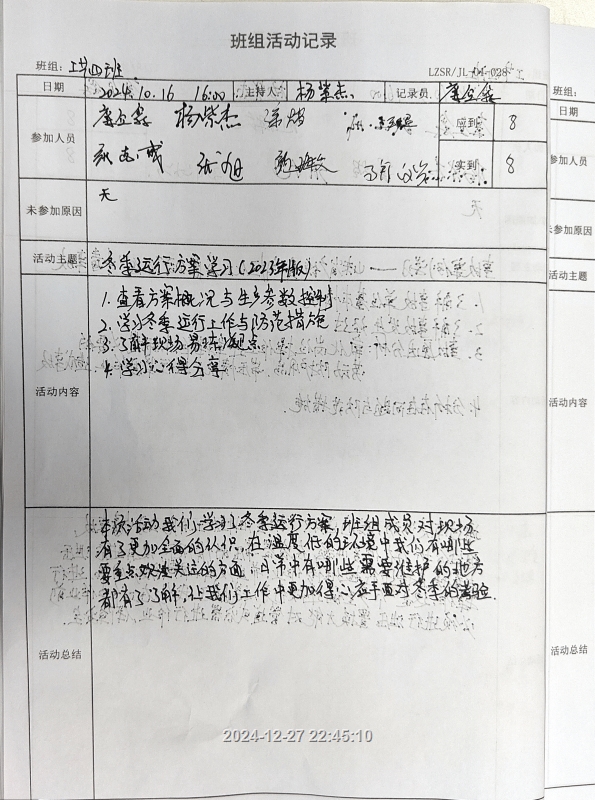 班组活动记录
班组: 四班
LZSR/JL-04-028
日期 2024.10.16 16:00 主持人 杨紫杰 记录员
参加人员 杨紫杰 应到 8
旭 实到 8
未参加原因 无
活动主题 冬季运行方案学习(2023年版)
活动内容
1. 查看方案概况与生产参数控制
2. 学习冬季运行工作与防范措施
3. 了解现场易冻凝点
4. 学习心得分享
本次活动我们学习了冬季运行方案,班组成员对现场
有了更加全面的认识,在温度低的环境中我们有哪些
要重点关注的方面,日常中有哪些需要维护的地方
都有了了解,让我们工作中更加得心应手面对冬季的考验.
活动总结
2024-12-27 22:45:10
班组:
日期
参加人员
未参加原因
活动主题
活动内容
活动总结